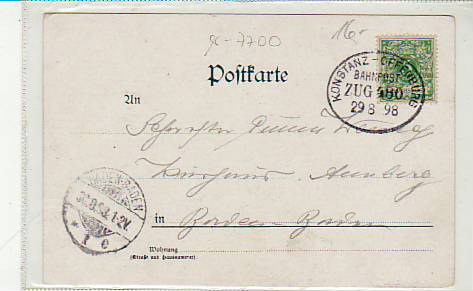 9c-7700
16,-
Postkarte
KONSTANZ - OFFENBURG
BAHNPOST
ZUG 480
29 8 98
An
Kurhaus Annaberg
BADEN-BADEN
1 c
in Baden-Baden
Wohnung
(Straße und Hausnummer)